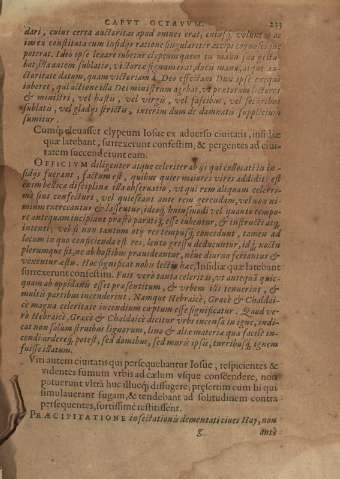 CAPVT OCTAVVM. 223
dari, cuius certa auctoritas apud omnes erat, cuiusq; volunt
im ex constituta cum insidijs ratione singulariter accipi cognosciq;
poterat. Ideo ipse leuare iubetur clypeum quem in manu sua gesta-
bat, ista autem sublatio, victoriae signum erat, dictu manu, atque au-
ctoritate datum, quam victoriam à Deo effectam Dnus ipse
iubere, qui actione illa Dei ministrum agebat, vt praetorum lictores
& ministri, vel hastis, vel virgis, vel fascibus, vel securibus
sublatis, vel gladijs strictis, interim dum de damnatis supplicium
sumitur.
Cumq; eleuasset clypeum Iosue ex aduerso ciuitatis, insidiae
quae latebant, surrexerunt confestim, & pergentes ad ciui-
tatem succenderunt eam.
OFFICIVM diligenter atque celeriter ab ijs qui collocati in in-
sidijs fuerant, factum est, quibus quies maiores vires addidit: est
enim bellicae disciplinae illa obseruatio, vt qui rem aliquam celerri-
mè sint confecturi, vel quiescant ante rem gerendam, vel non ni-
mium exerceantur & lassentur, ideoq; huiusmodi vel quanto tempo-
re antequam incipiant praesto parati q; esse iubentur, & instructi atq;
intenti; vel si non tantum oty res tempusq; concedunt, tamen ad
locum in quo conficienda est res, lento gressu deducuntur, idq; noctu
plerumque sit, ac ab hostibus praeuideantur, néue diurno feriantur &
vrantur aestu. Hac significat nobis lectio haec, Insidiae quae latebant
surrexerunt confestim. Fuit verò tanta celeritas, vt antequa quic-
quam ab oppidanis esset praesentitum, & vrbem illi tenuerint, &
multis partibus incenderint. Namque Hebraicè, Graecè & Chaldai-
cè magna celeritate incendium captum esse significatur. Quod ve-
rò Hebraicè, Graecè & Chaldaicè dicitur vrbs incensa in igne, indi-
cat non solum struibus lignorum, lino & alia materia quae facilè in-
cendi arderéq; potest, sed domibus, sed muris ipsis, turribusq; ignem
fuisse illatum.
Viri autem ciuitatis qui persequebantur Iosue, respicientes &
videntes fumum vrbis ad caelum vsque conscendere, non
potuerunt vltrà huc illucq; diffugere, praesertim cum hi qui
simulauerant fugam, & tendebant ad solitudinem contra
persequentes, fortissimè restitissent.
PRAECIPITATIONE insectationis dementati ciues Hay, non
g ante